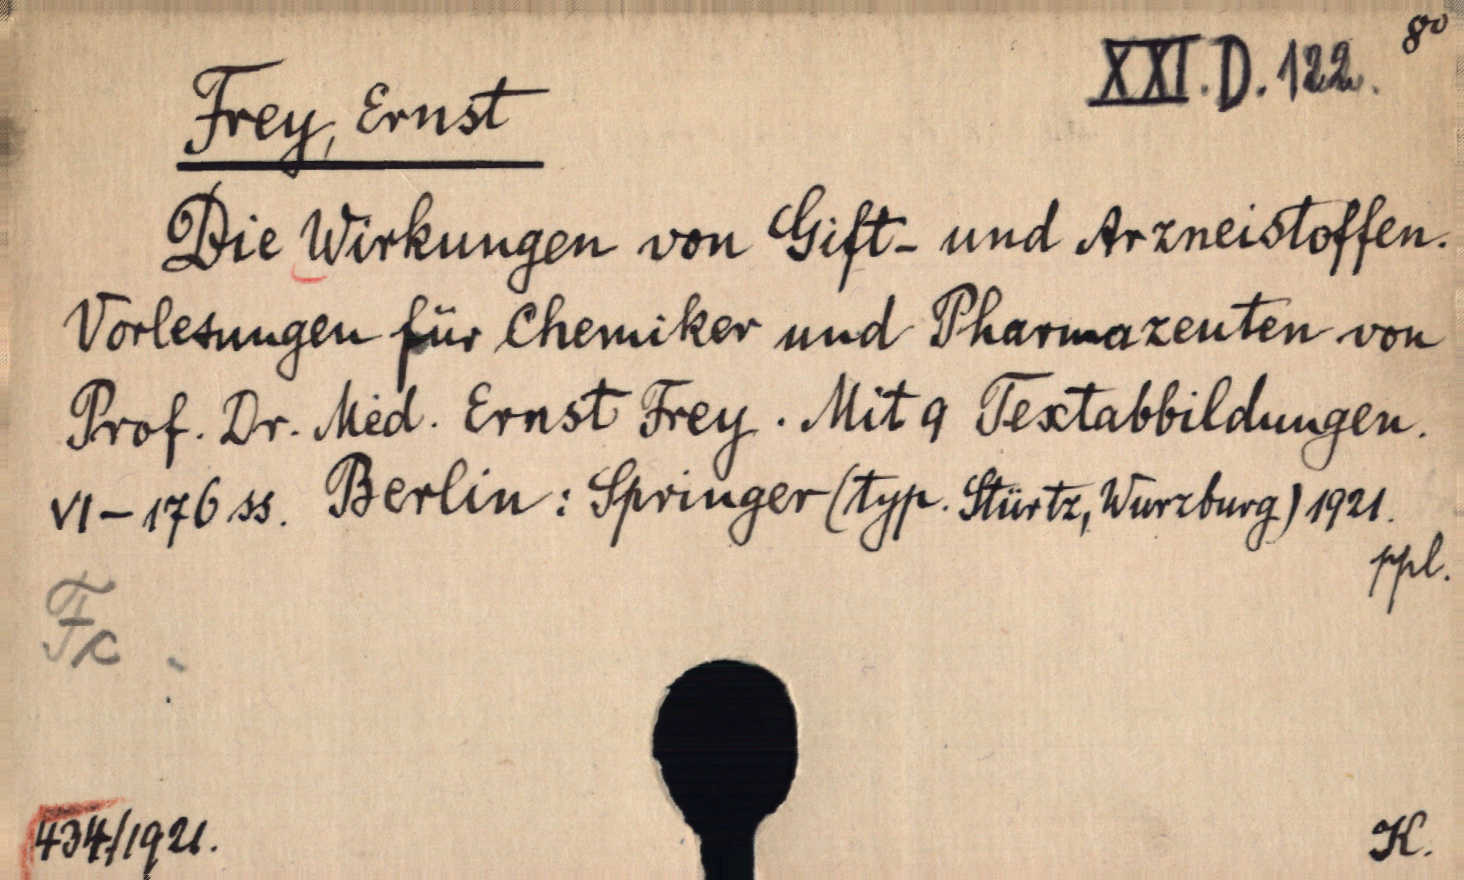 8º
XXI.D.122.
Frey, Ernst
Die Wirkungen von Gift- und Arzneistoffen.
Vorlesungen für Chemiker und Pharmazeuten von
Prof. Dr. Med. Ernst Frey. Mit 9 Textabbildungen.
VI-176 ss. Berlin: Springer (typ. Stürtz, Wurzburg) 1921.
ppl.
Fc
434/1921.
K.